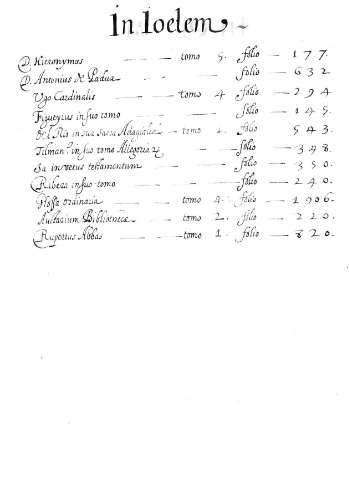 In Ioelem
D. Hieronymus — tomo 5. folio — 177.
D. Antonius de Padua — folio — 632.
Vgo Cardinalis — tomo 4. folio — 294.
in suo tomo — folio — 145.
Del Rio in sua sacra Adagialia — tomo 2. folio — 543.
Tilman. in suo tomo Allegoria — folio — 348.
Sa in vetus testamentum — folio — 350.
Ribera in suo tomo — folio — 240.
Glossa ordinaria — tomo 4. folio — 1906.
Auctarium Bibliotheca — tomo 2. folio — 220.
Rupertus Abbas — tomo 1. folio — 820.